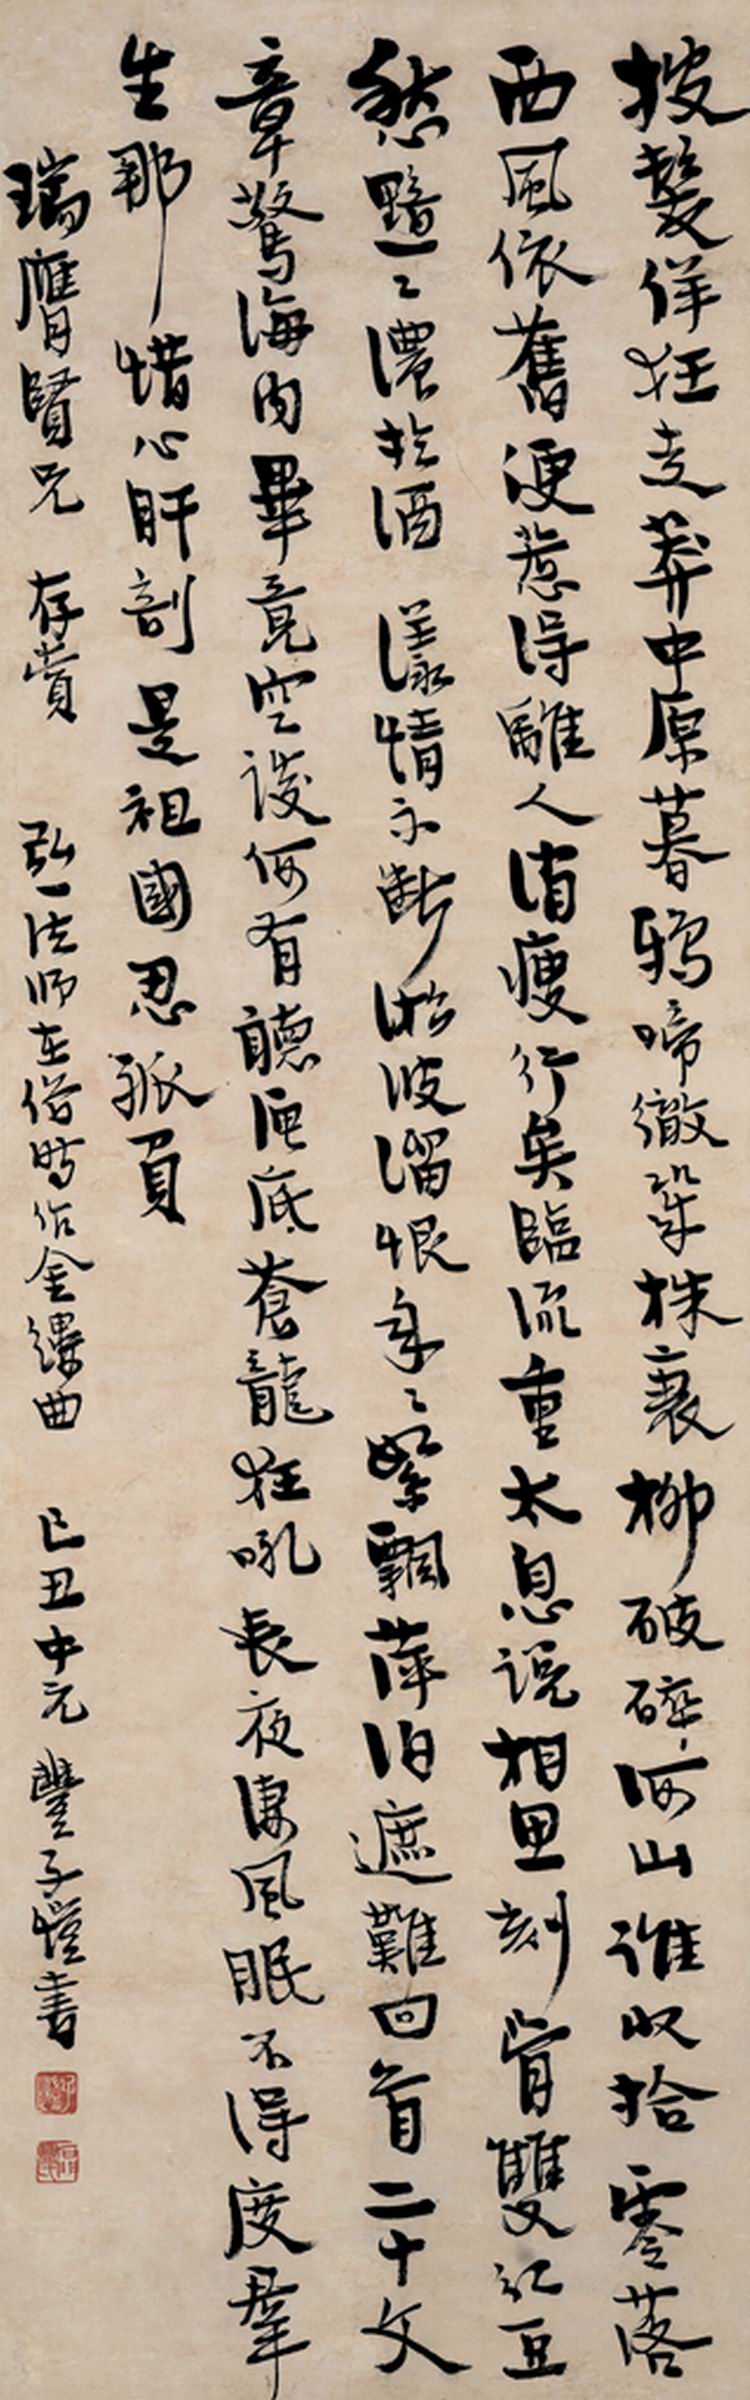 披髮佯狂走莽中原暮鴉啼徹幾株衰柳破碎河山誰收拾零落
西風依舊便惹得離人消瘦行矣臨流重太息說相思刻骨雙紅豆
愁黯〻濃於酒 漾情不斷淞波溜恨年〻絮飄萍泊遮難回首二十文
章驚海內畢竟空談何有聽匣底蒼龍狂吼長夜淒風眠不得度羣
生那惜心肝剖是祖國忍孤負
瑞膺賢兄 存賞 弘一法師在俗時作金縷曲 己丑中元 豐子愷書